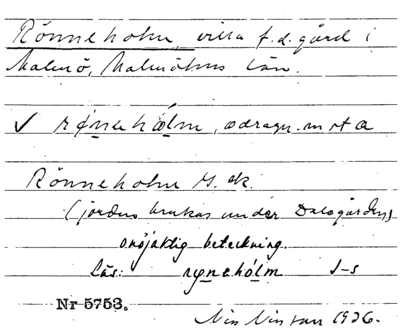 Rönneholm, villa f.d. gård i
Malmö, Malmöhus län.
✓ rønehólm, odragn. m st a
Rönneholm M. ek.
(jorden brukas under Dalsgården)
onöjaktig beteckning.
Läs: røneholm J-s
Nr 5753.
Nils Nilsson 1936.